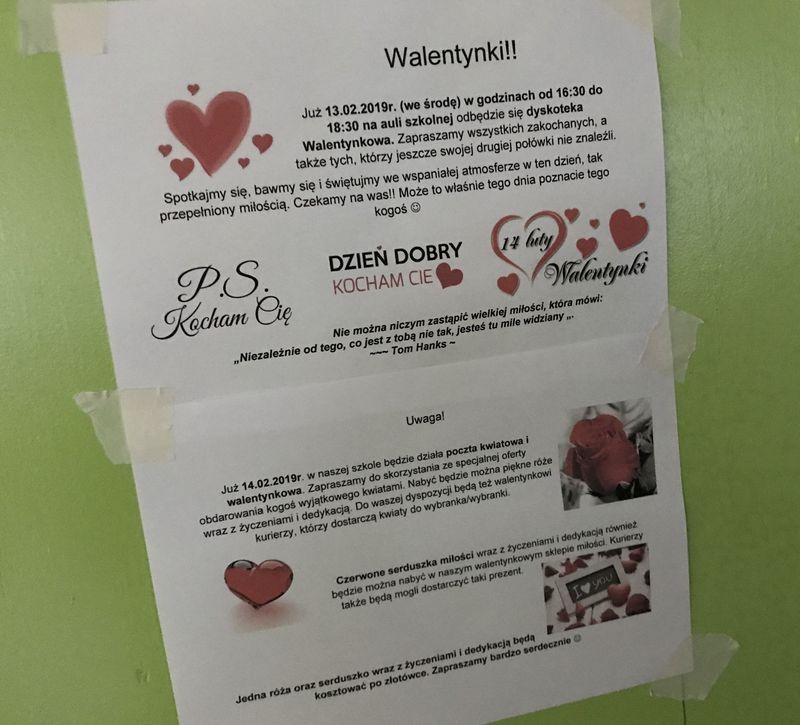 Walentynki!!
Już 13.02.2019r. (we środę) w godzinach od 16:30 do
18:30 na auli szkolnej odbędzie się dyskoteka
Walentynkowa. Zapraszamy wszystkich zakochanych, a
także tych, którzy jeszcze swojej drugiej połówki nie znaleźli.
Spotkajmy się, bawmy się i świętujmy we wspaniałej atmosferze w ten dzień, tak
przepełniony miłością. Czekamy na was!! Może to właśnie tego dnia poznacie tego
kogoś ☺
P.S.
Kocham Cię
DZIEŃ DOBRY
KOCHAM CIE
14 luty
Walentynki
Nie można niczym zastąpić wielkiej miłości, która mówi:
„Niezależnie od tego, co jest z tobą nie tak, jesteś tu mile widziany „.
~~~ Tom Hanks ~
Uwaga!
Już 14.02.2019r. w naszej szkole będzie działa poczta kwiatowa i
walentynkowa. Zapraszamy do skorzystania ze specjalnej oferty
obdarowania kogoś wyjątkowego kwiatami. Nabyć będzie można piękne róże
wraz z życzeniami i dedykacją. Do waszej dyspozycji będą też walentynkowi
kurierzy, którzy dostarczą kwiaty do wybranka/wybranki.
Czerwone serduszka miłości wraz z życzeniami i dedykacją również
będzie można nabyć w naszym walentynkowym sklepie miłości. Kurierzy
także będą mogli dostarczyć taki prezent.
I ♥ you
Jedna róża oraz serduszko wraz z życzeniami i dedykacją będą
kosztować po złotówce. Zapraszamy bardzo serdecznie ☺